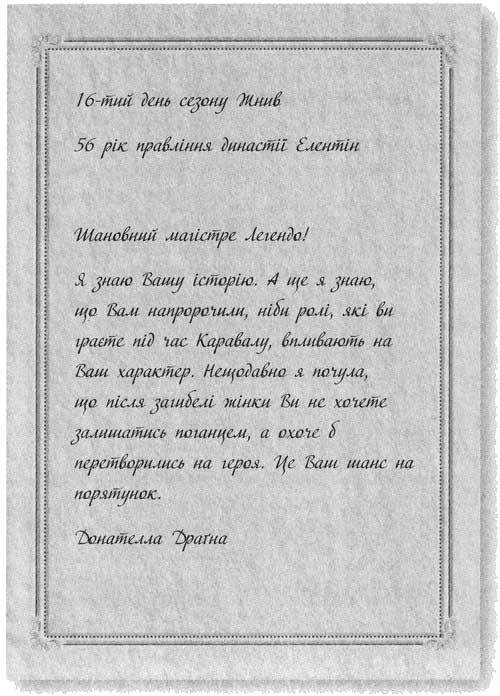 16-тий день сезону Жнив
56 рік правління династії Елентін
Шановний магістре Легендо!
Я знаю Вашу історію. А ще я знаю,
що Вам напророчили, ніби ролі, які ви
граєте під час Каравалу, впливають на
Ваш характер. Нещодавно я почула,
що після загибелі жінки Ви не хочете
залишатись поганцем, а охоче б
перетворились на героя. Це Ваш шанс на
порятунок.
Донателла Драґна